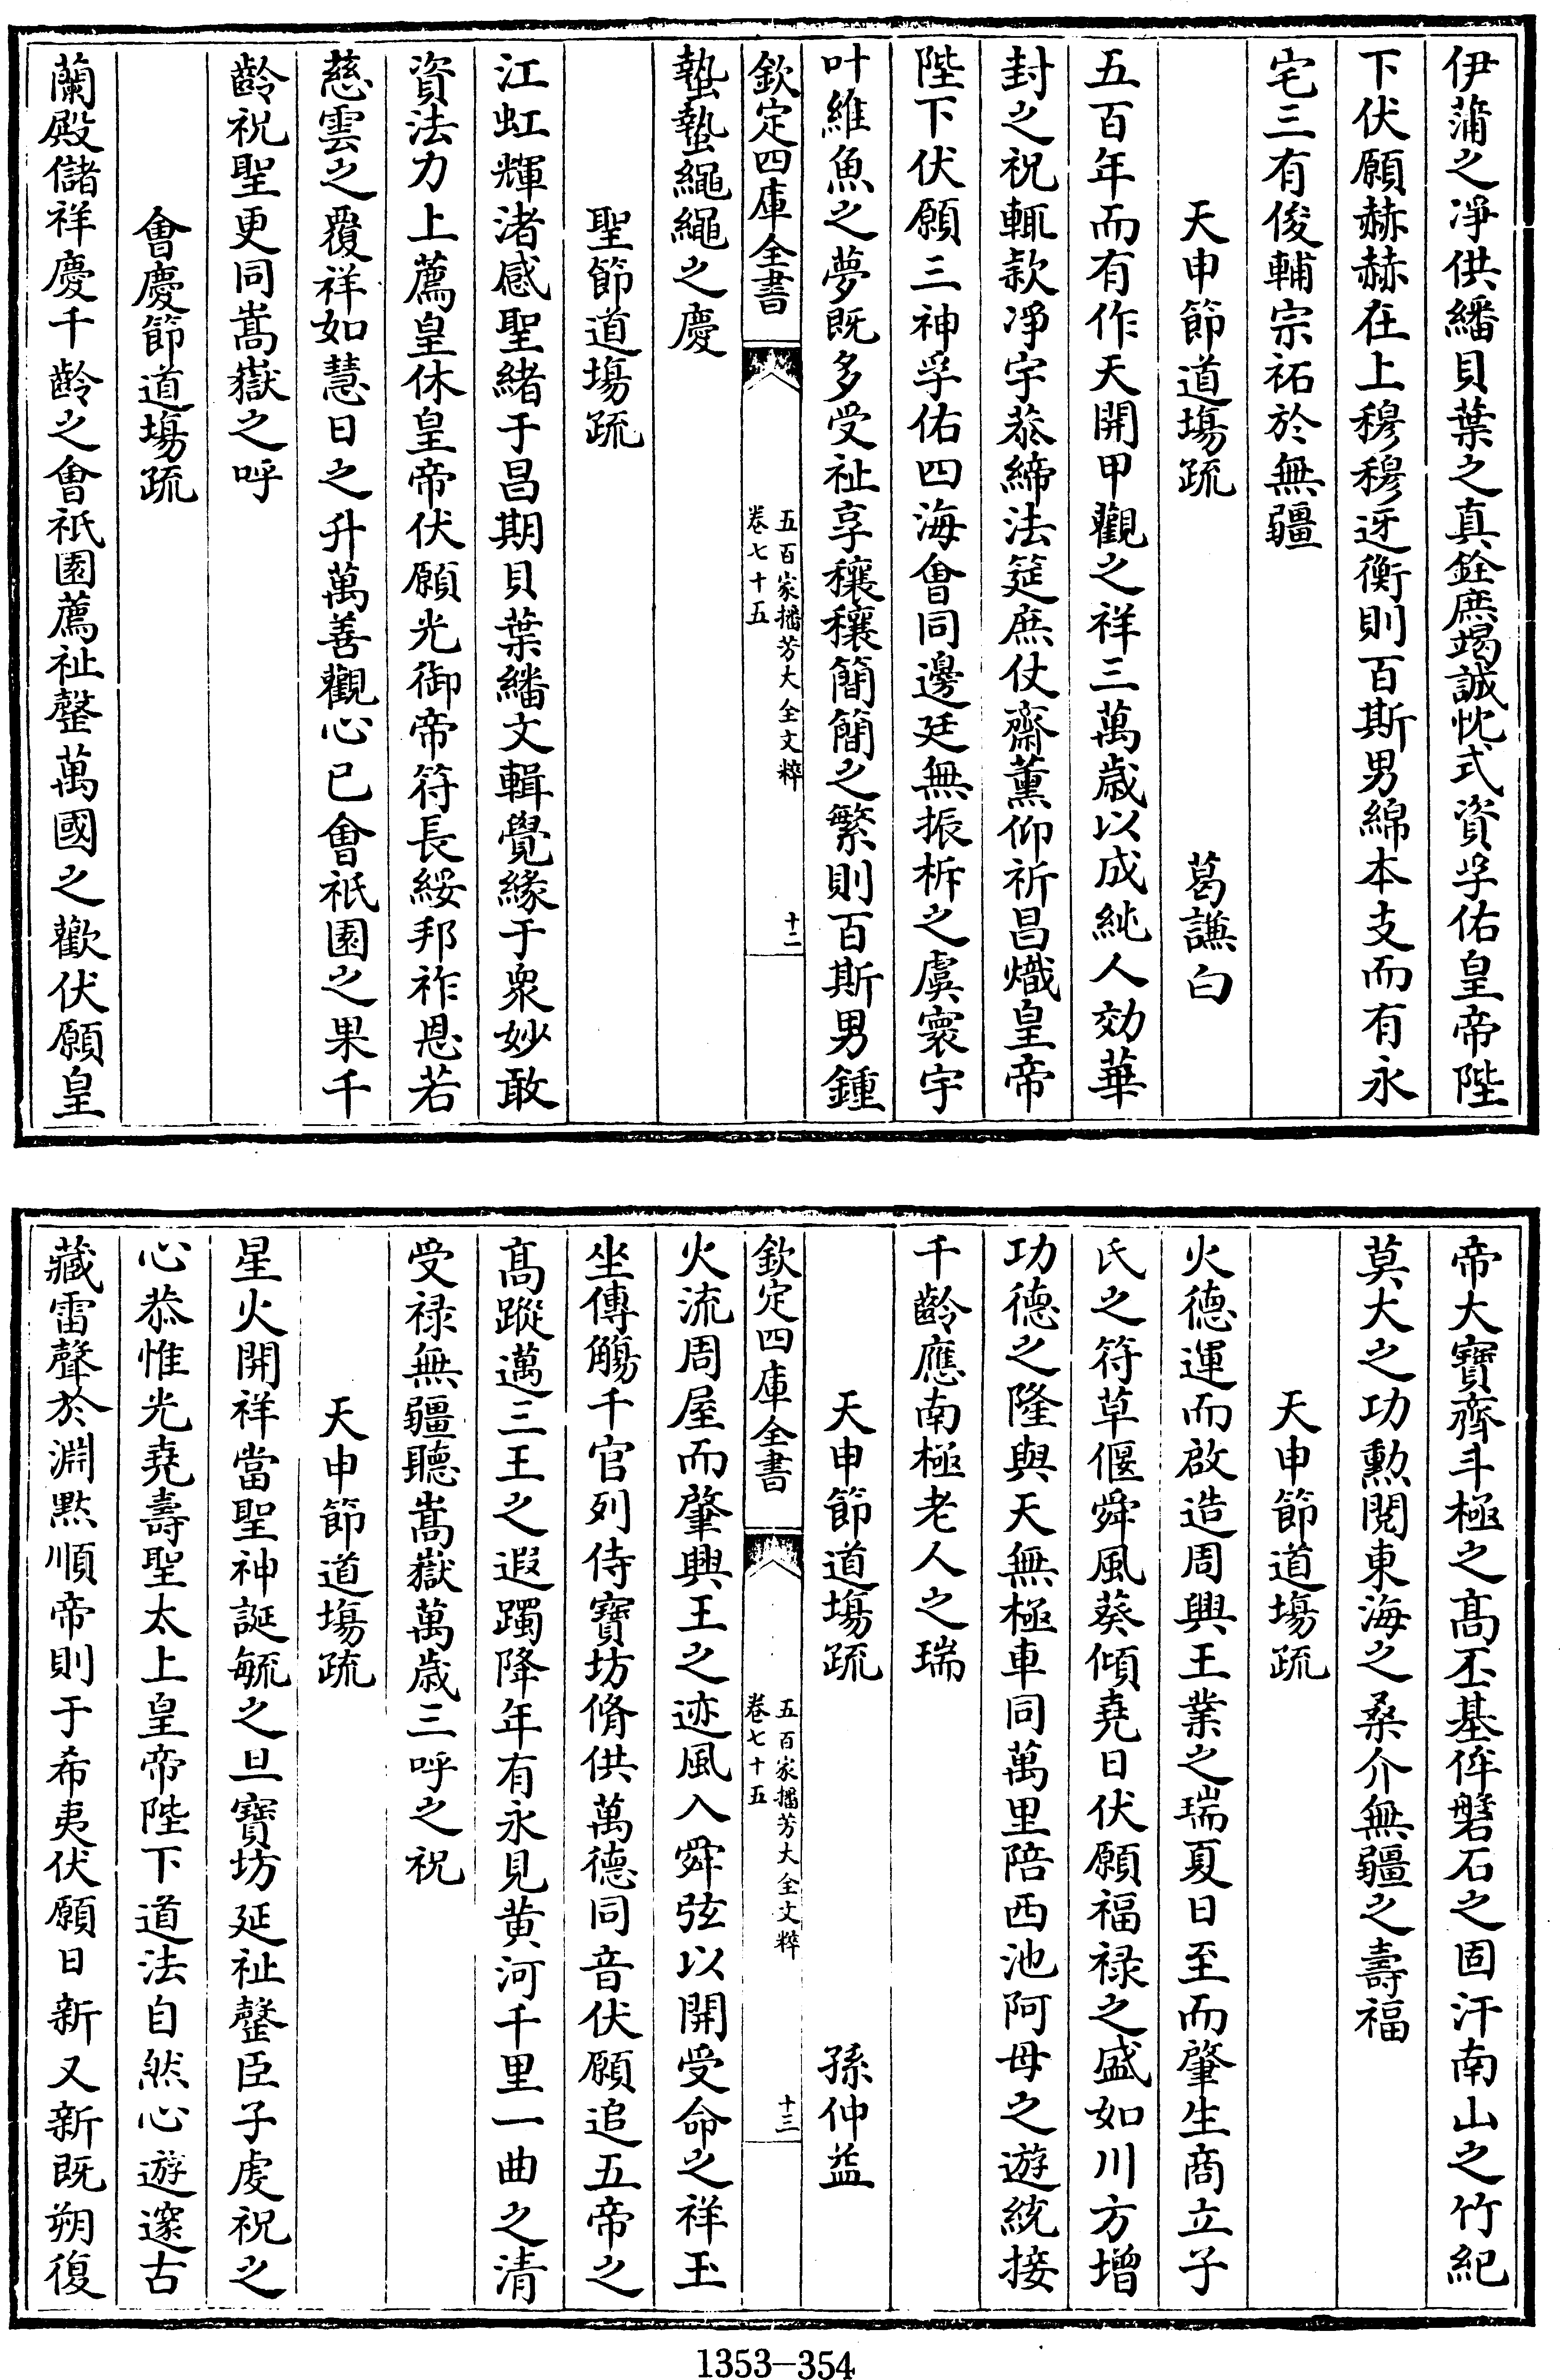 伊蒲之淨供繙貝葉之真銓庶竭誠忱式資孚佑皇帝陛
下伏願赫赫在上穆穆迓衡則百斯男綿本支而有永
宅三有俊輔宗祏於無疆
天申節道塲疏　葛謙白
五百年而有作天開甲觀之祥三萬歲以成純人効華
封之祝輒款淨宇恭締法筵庶仗齋薰仰祈昌熾皇帝
陛下伏願三神孚佑四海會同邊廷無振柝之虞寰宇
叶維魚之夢既多受祉享穰穰簡簡之繁則百斯男鍾
欽定四庫全書　五百家播芳大全文粹　卷七十五　十二
蟄蟄繩繩之慶
聖節道塲疏
江虹輝渚感聖緒于昌期貝葉繙文輯覺緣于衆妙敢
資法力上薦皇休皇帝伏願光御帝符長綏邦祚恩若
慈雲之覆祥如慧日之升萬善觀心已會祇園之果千
齡祝聖更同嵩嶽之呼
會慶節道塲疏
蘭殿儲祥慶千齡之會祇園薦祉罄萬國之歡伏願皇
帝大寶齊斗極之髙丕基侔磐石之固汗南山之竹紀
莫大之功勲閱東海之桑介無疆之壽福
天申節道塲疏
火德運而啟造周興王業之瑞夏日至而肇生商立子
氏之符草偃舜風葵傾堯日伏願福禄之盛如川方增
功德之隆與天無極車同萬里陪西池阿母之遊統接
千齡應南極老人之瑞
天申節道塲疏　孫仲益
欽定四庫全書　五百家播芳大全文粹　卷七十五　十三
火流周屋而肇興王之迹風入舜弦以開受命之祥玉
坐傳觴千官列侍寶坊脩供萬德同音伏願追五帝之
髙蹤邁三王之遐躅降年有永見黄河千里一曲之清
受禄無疆聽嵩嶽萬歲三呼之祝
天申節道塲疏
星火開祥當聖神誕毓之旦寶坊延祉罄臣子虔祝之
心恭惟光堯壽聖太上皇帝陛下道法自然心遊邃古
藏雷聲於淵黙順帝則于希夷伏願日新又新既朔復
1353—354